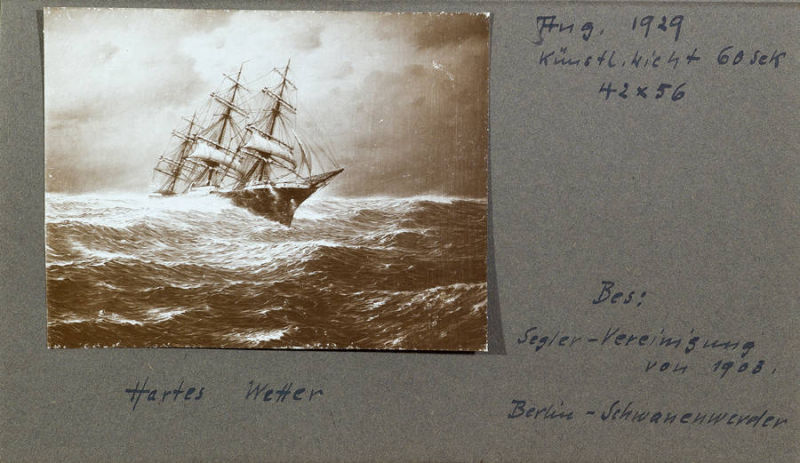 Aug. 1929
Künstl. Licht 60 Sek
42x56
Bes:
Segler-Vereinigung
von 1903.
Hartes Wetter
Berlin-Schwanenwerder